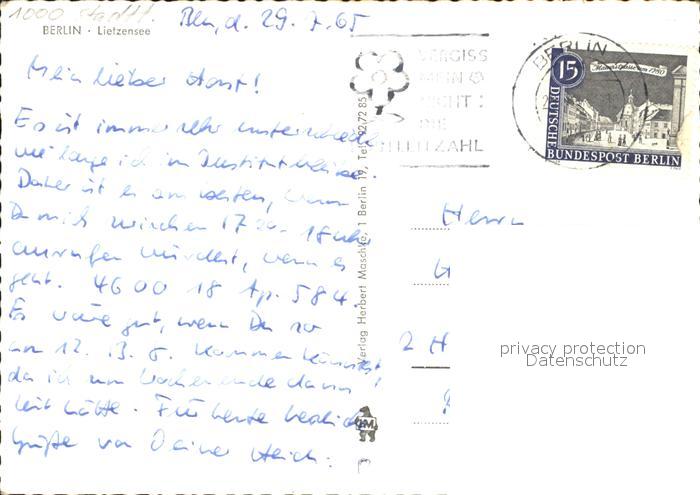 1000 Stadt!
Bln, d. 29. 7. 65
BERLIN · Lietzensee
Mein lieber Horst!
Es ist immer sehr unterschiedlich
wie lange ich im Institut bleibe.
Daher ist es am besten, wenn
Du mich zwischen 17 18 Uhr
anrufen würdest, wenn es
geht. 46 00 18 Ap. 584.
Es wäre gut, wenn Du so
am 12. 13. 8. kommen könntest,
da ich am Wochenende dann
Zeit hätte. Für heute herzliche
Grüße von Deiner
VERGISS
MEIN
NICHT:
DIE
LEITZAHL
BERLIN
15
DEUTSCHE
BUNDESPOST BERLIN
Verlag Herbert Maschke, 1 Berlin 19, Tel. 92 72 85
HM
Herrn
2 H
privacy protection
Datenschutz